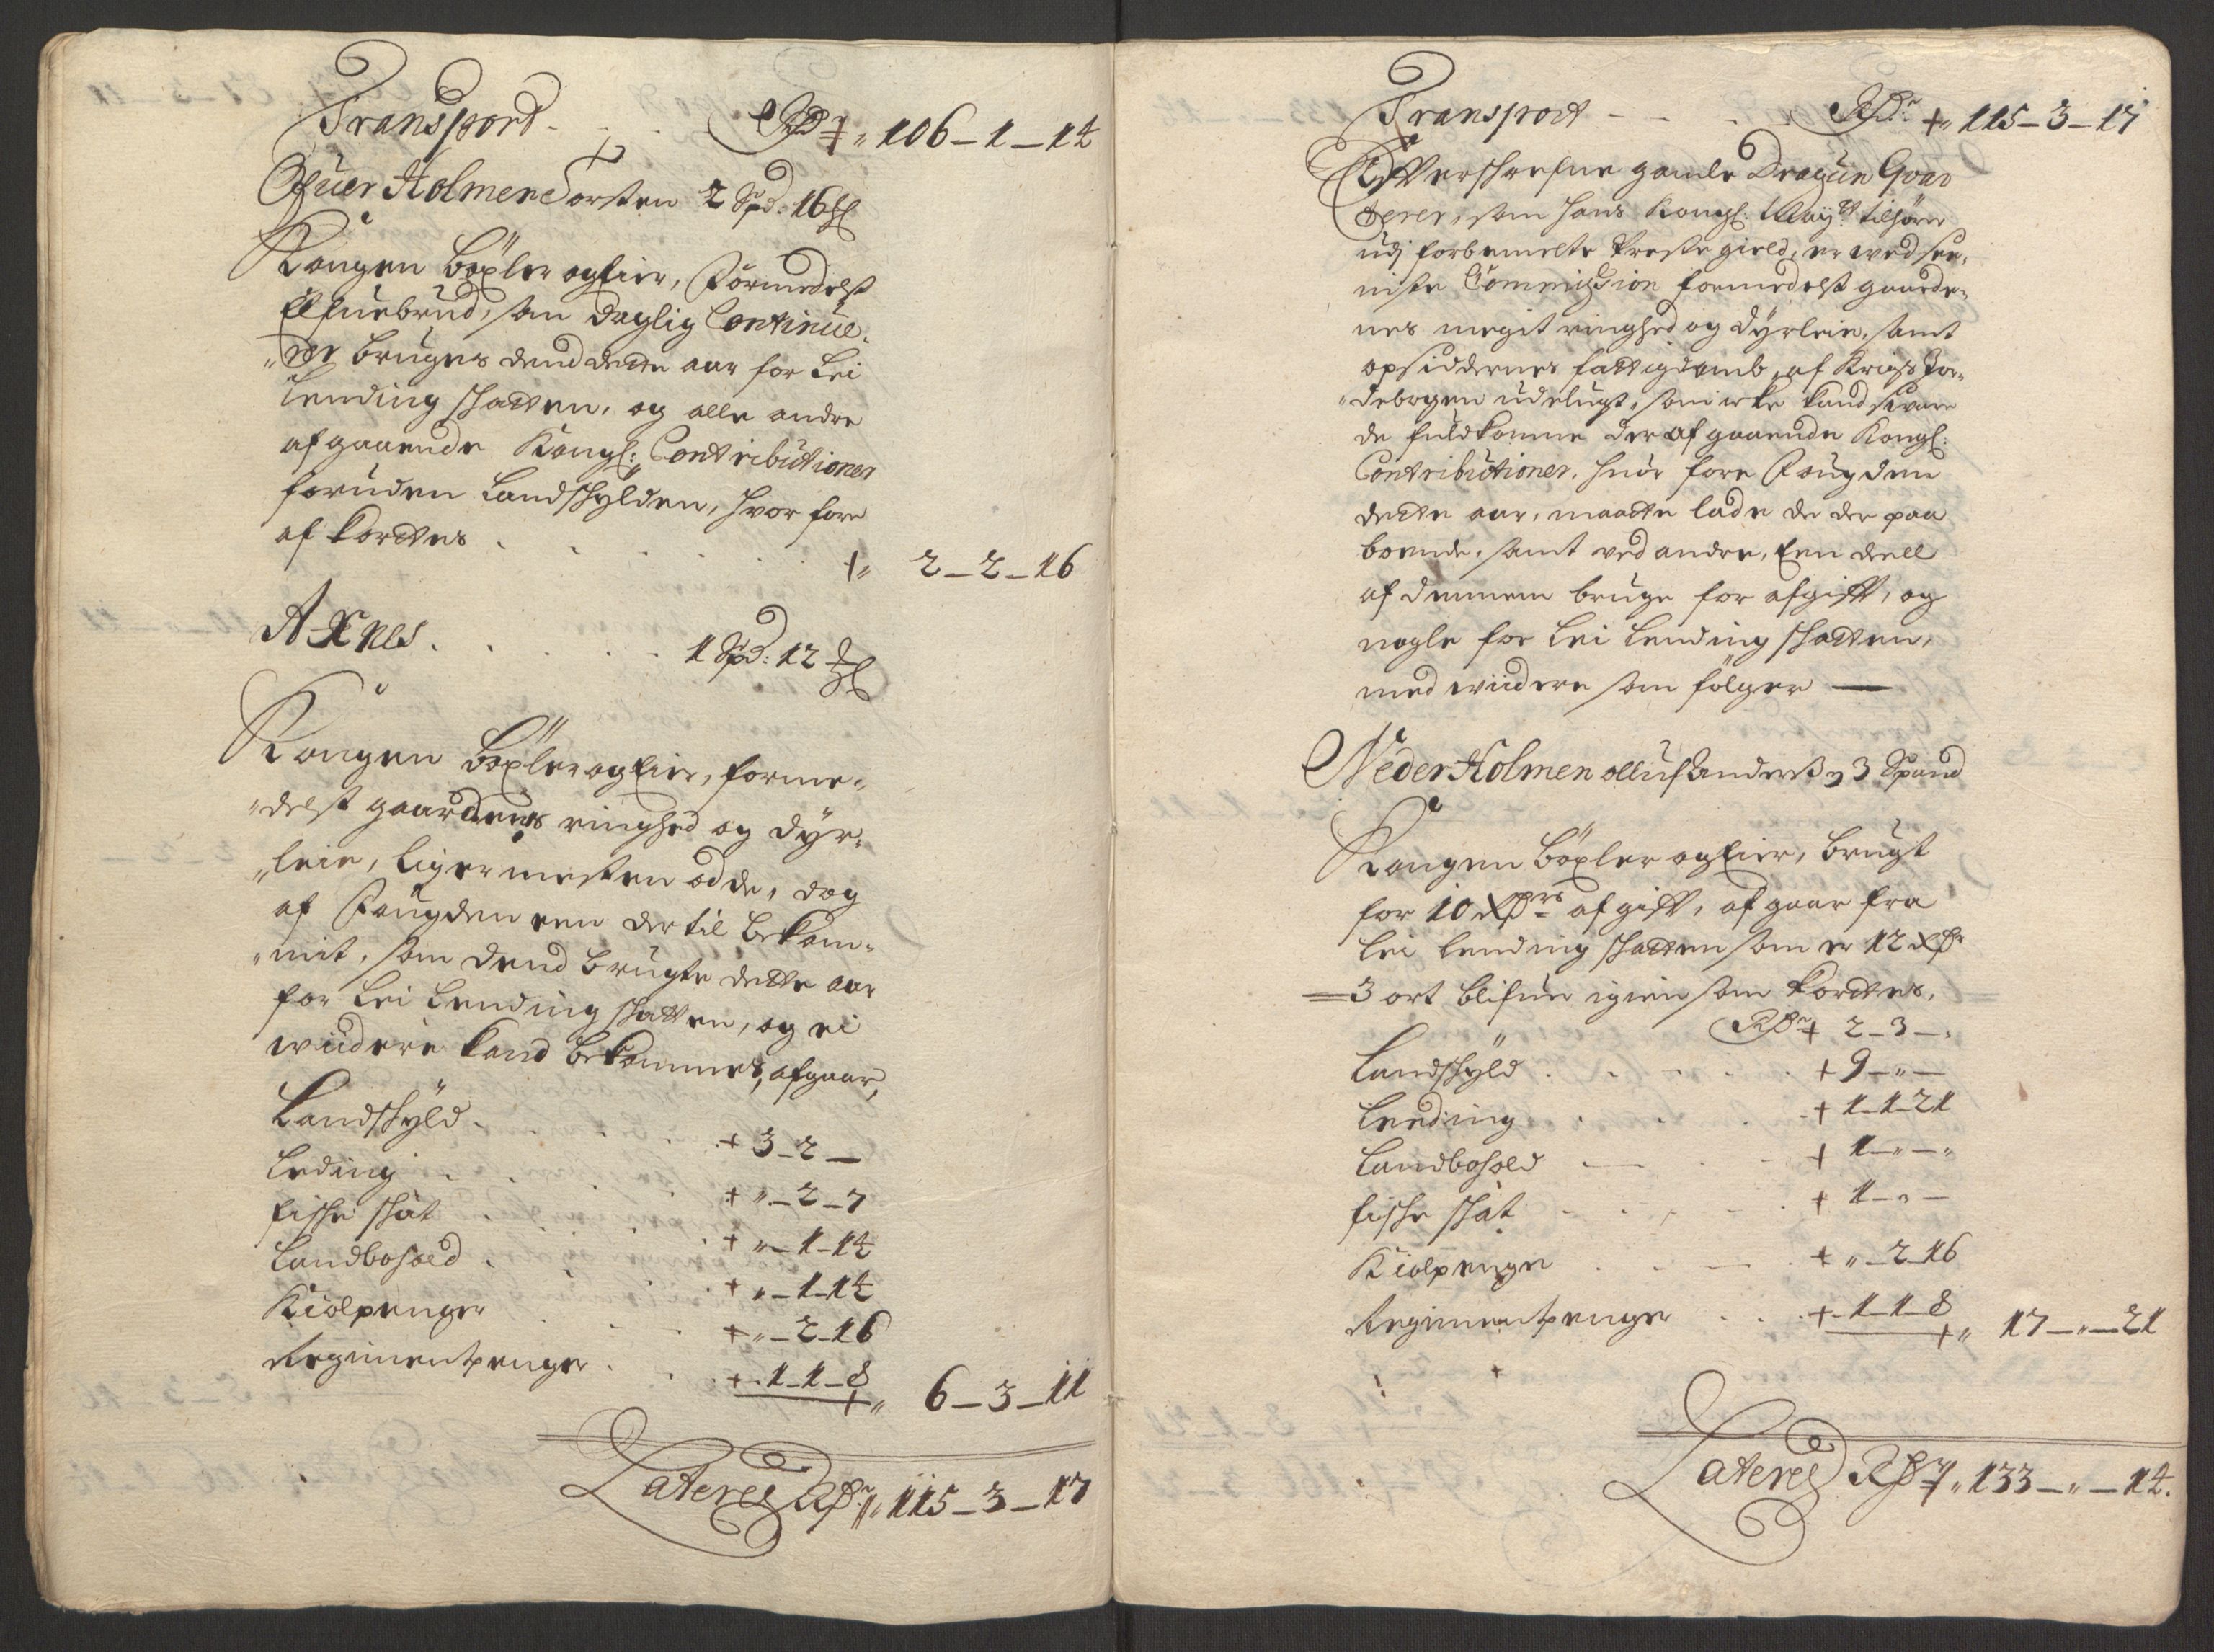 Transport - . . Rdr +„ 106_1_14
Ofuer Holmen Torsten 2 Spd: 16
Kongen böxler og Eier, Formedelst
Elfuebrud, som daglig Continue-
„rer bruges dend dette aar for Lei
Lending skatten, og alle andre
afgaaende Kongl: Contributioner
foruden Landskylden, hvor fore
af kortes . . . . . +„ 2_2_16
Axnes . . . . . 1 Spd: 12
Kongen böxler og Eier, forme-
„delst gaardens ringhed og dyr-
„leie, ligger mesten øde, dog
af Fougden een der til bekom-
„mit, som dend brugte dette aar
for Lei Lending skatten, og ei
widere kand bekommes, afgaar,
Landskyld . . . . + 3_2 _
Leding . . . . + „_2_7
fiske skat . . . . + „_1_14
Landbohold . . . . + „_1_14
Kiølpenger . . . + „_2_16
Regimentzpenger . . . +.1_1_8
+„ 6_3_11
Lateres Rdr „ 115_3_17
Transport - - . . Rdr +„ 115_3_17
Efterschrefne gamle Dragun Qvar
terer, som hans Kongl: Mayts tilhører
udj forbemelte Prestegield, er wed see-
niste Commission formedelst gaarde-
nes megit ringhed og dyrleie, samt
opsiddernes fattigdomb, af Krigs Jor-
„debogen udelugt, som icke kand svare
de fuldkomne der af gaaende Kongl:
Contributioner, huor fore Fougden
dette aar, maatte lade de der paa
boende, samt ved andre, Een deell
af dennem bruge for afgift, og
nogle for Lei Lending skatten,
med widere som følger —
Neder Holmen olluf Anderss: 3 Spand
Kongen böxler og Eier, brugt
for 10 Rdrs afgift, afgaar fra
Lei Lending skatten som er 12 Rdr
3 ort blifuer igien som kortes,
Rdr + 2_3_„
Landskyld . . . . . + 9_„_
Leeding . . . . + 1_1_21
Landbohold . . . + 1_„_„
fiske skat . . . . + 1_„_
Kiølpenge . . . . + „_2_16
Regimentzpenger . . . +.1_1_8
+„ 17_„_21
Lateres Rdr „ 133_„_14.